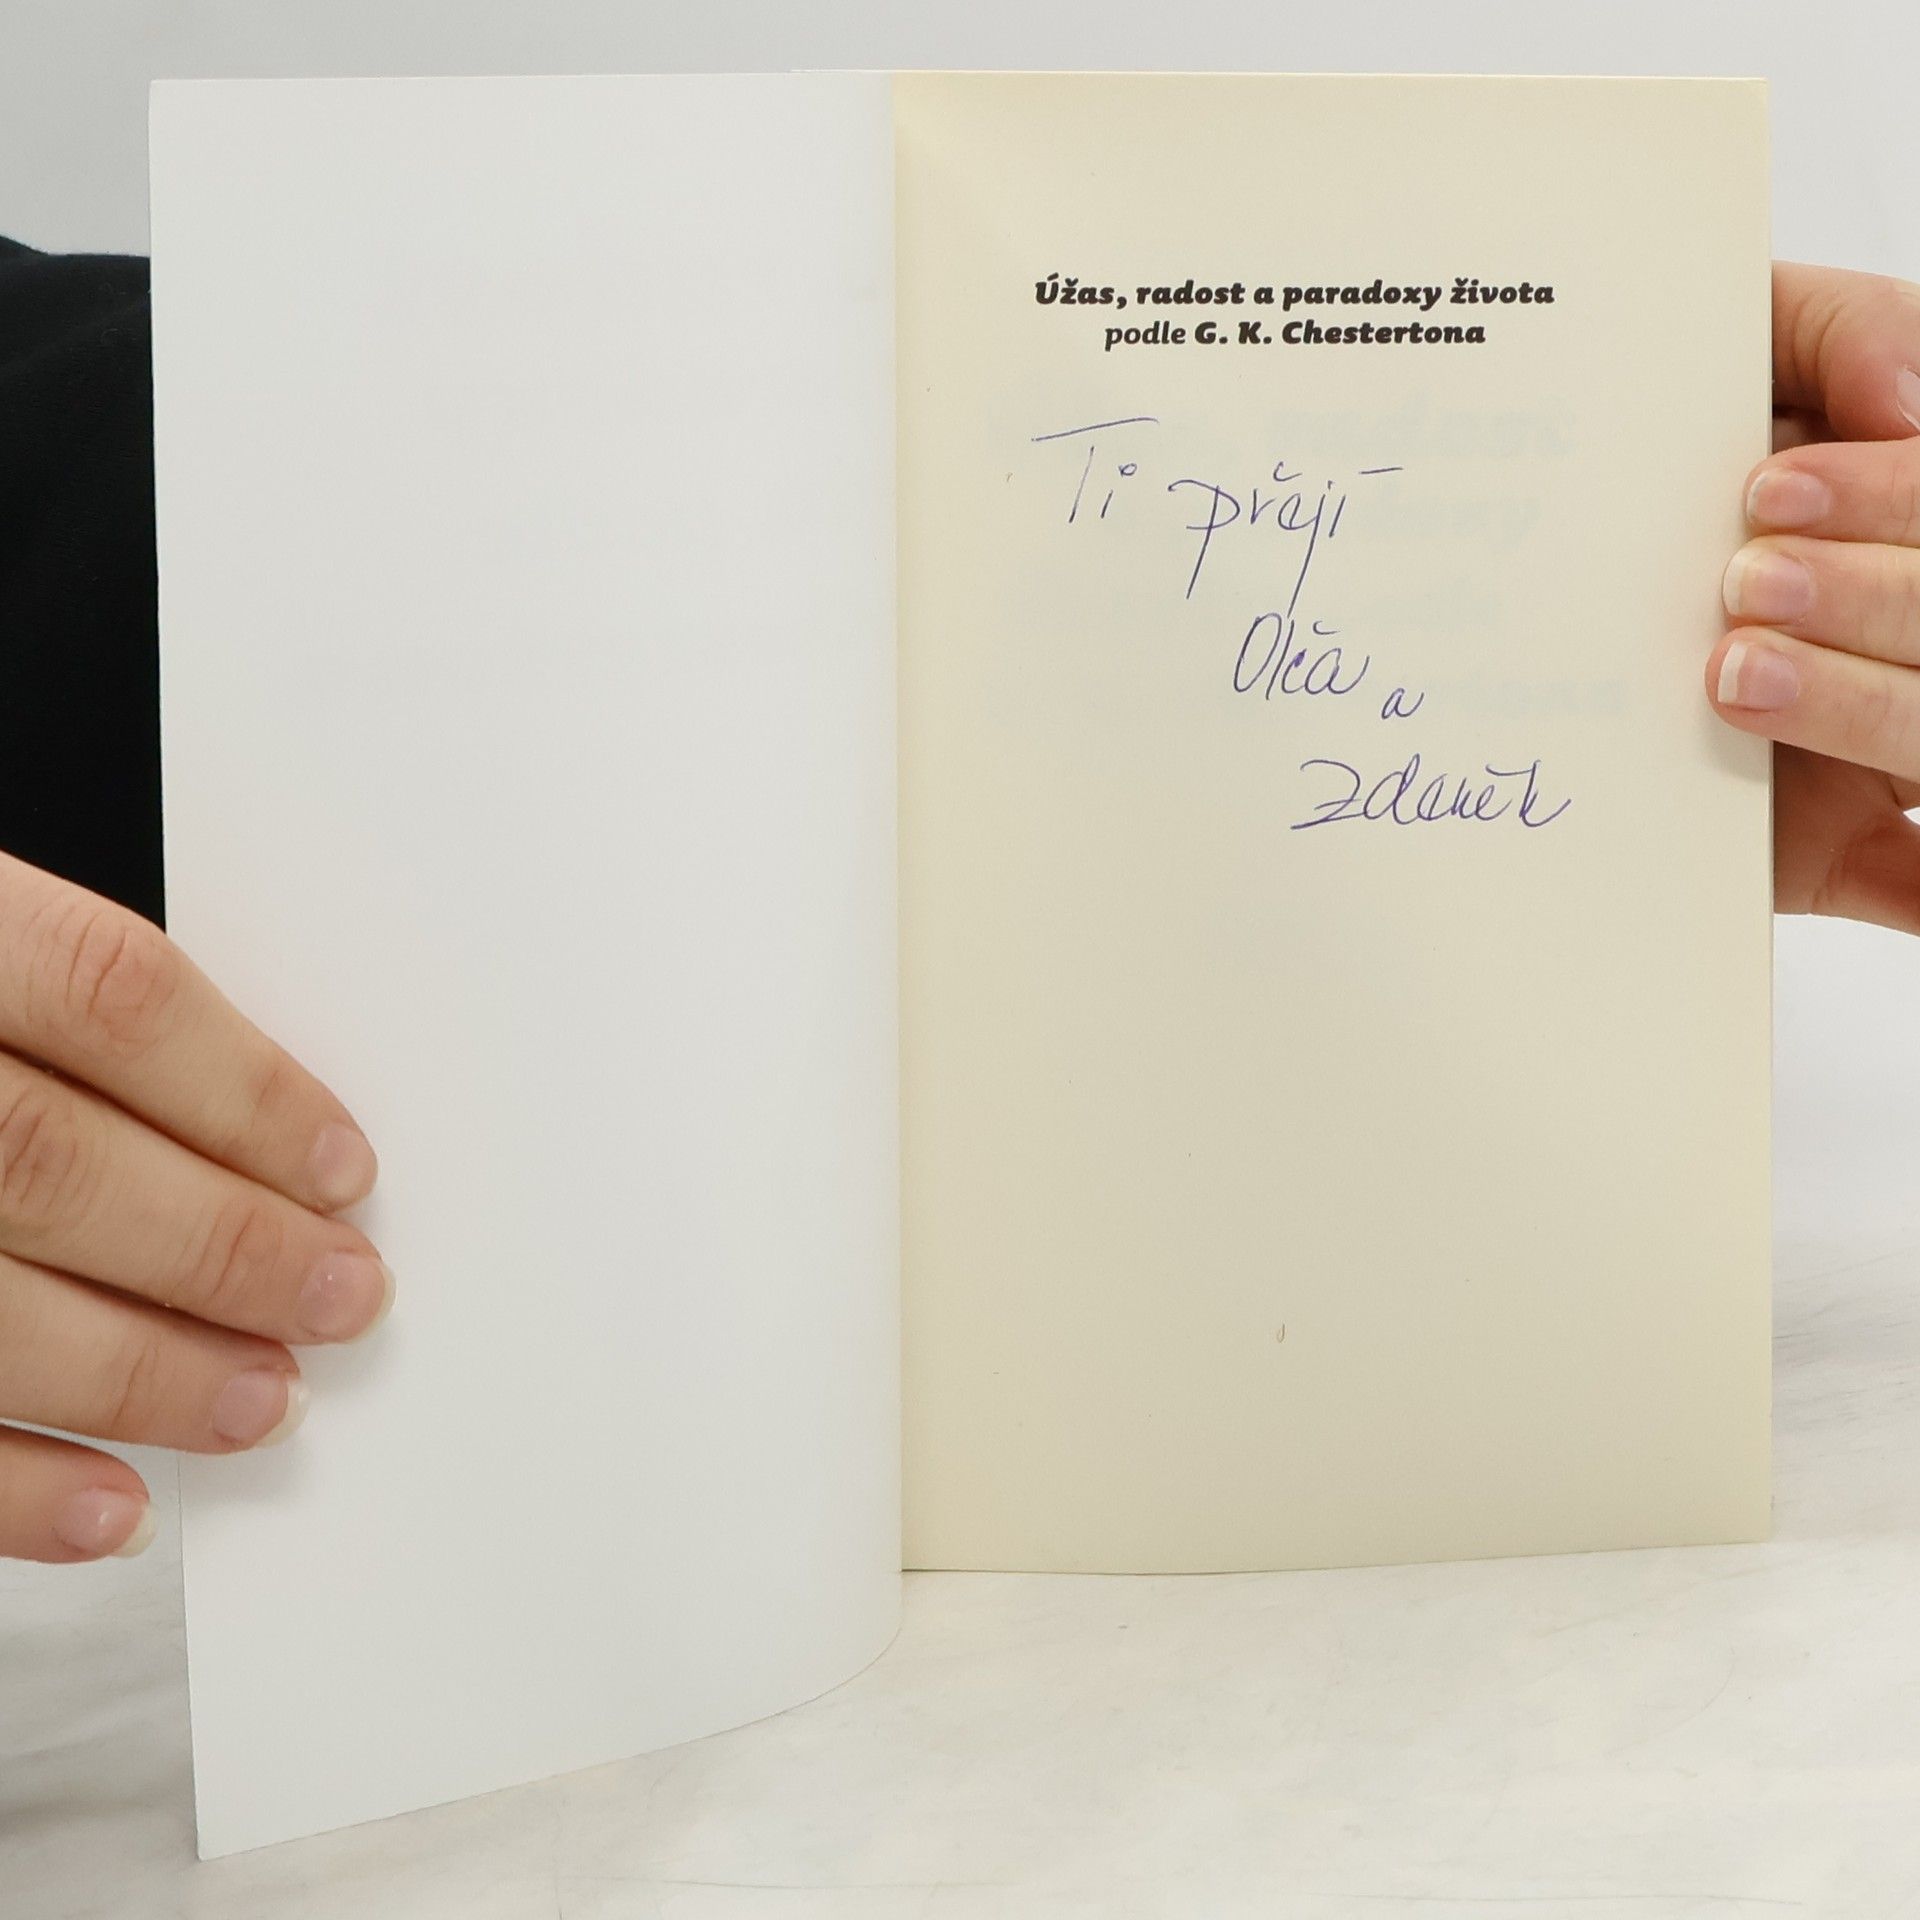 Úžas, radost a paradoxy života
podle G. K. Chestertona
Ti přejí
Olča a
Zdeněk